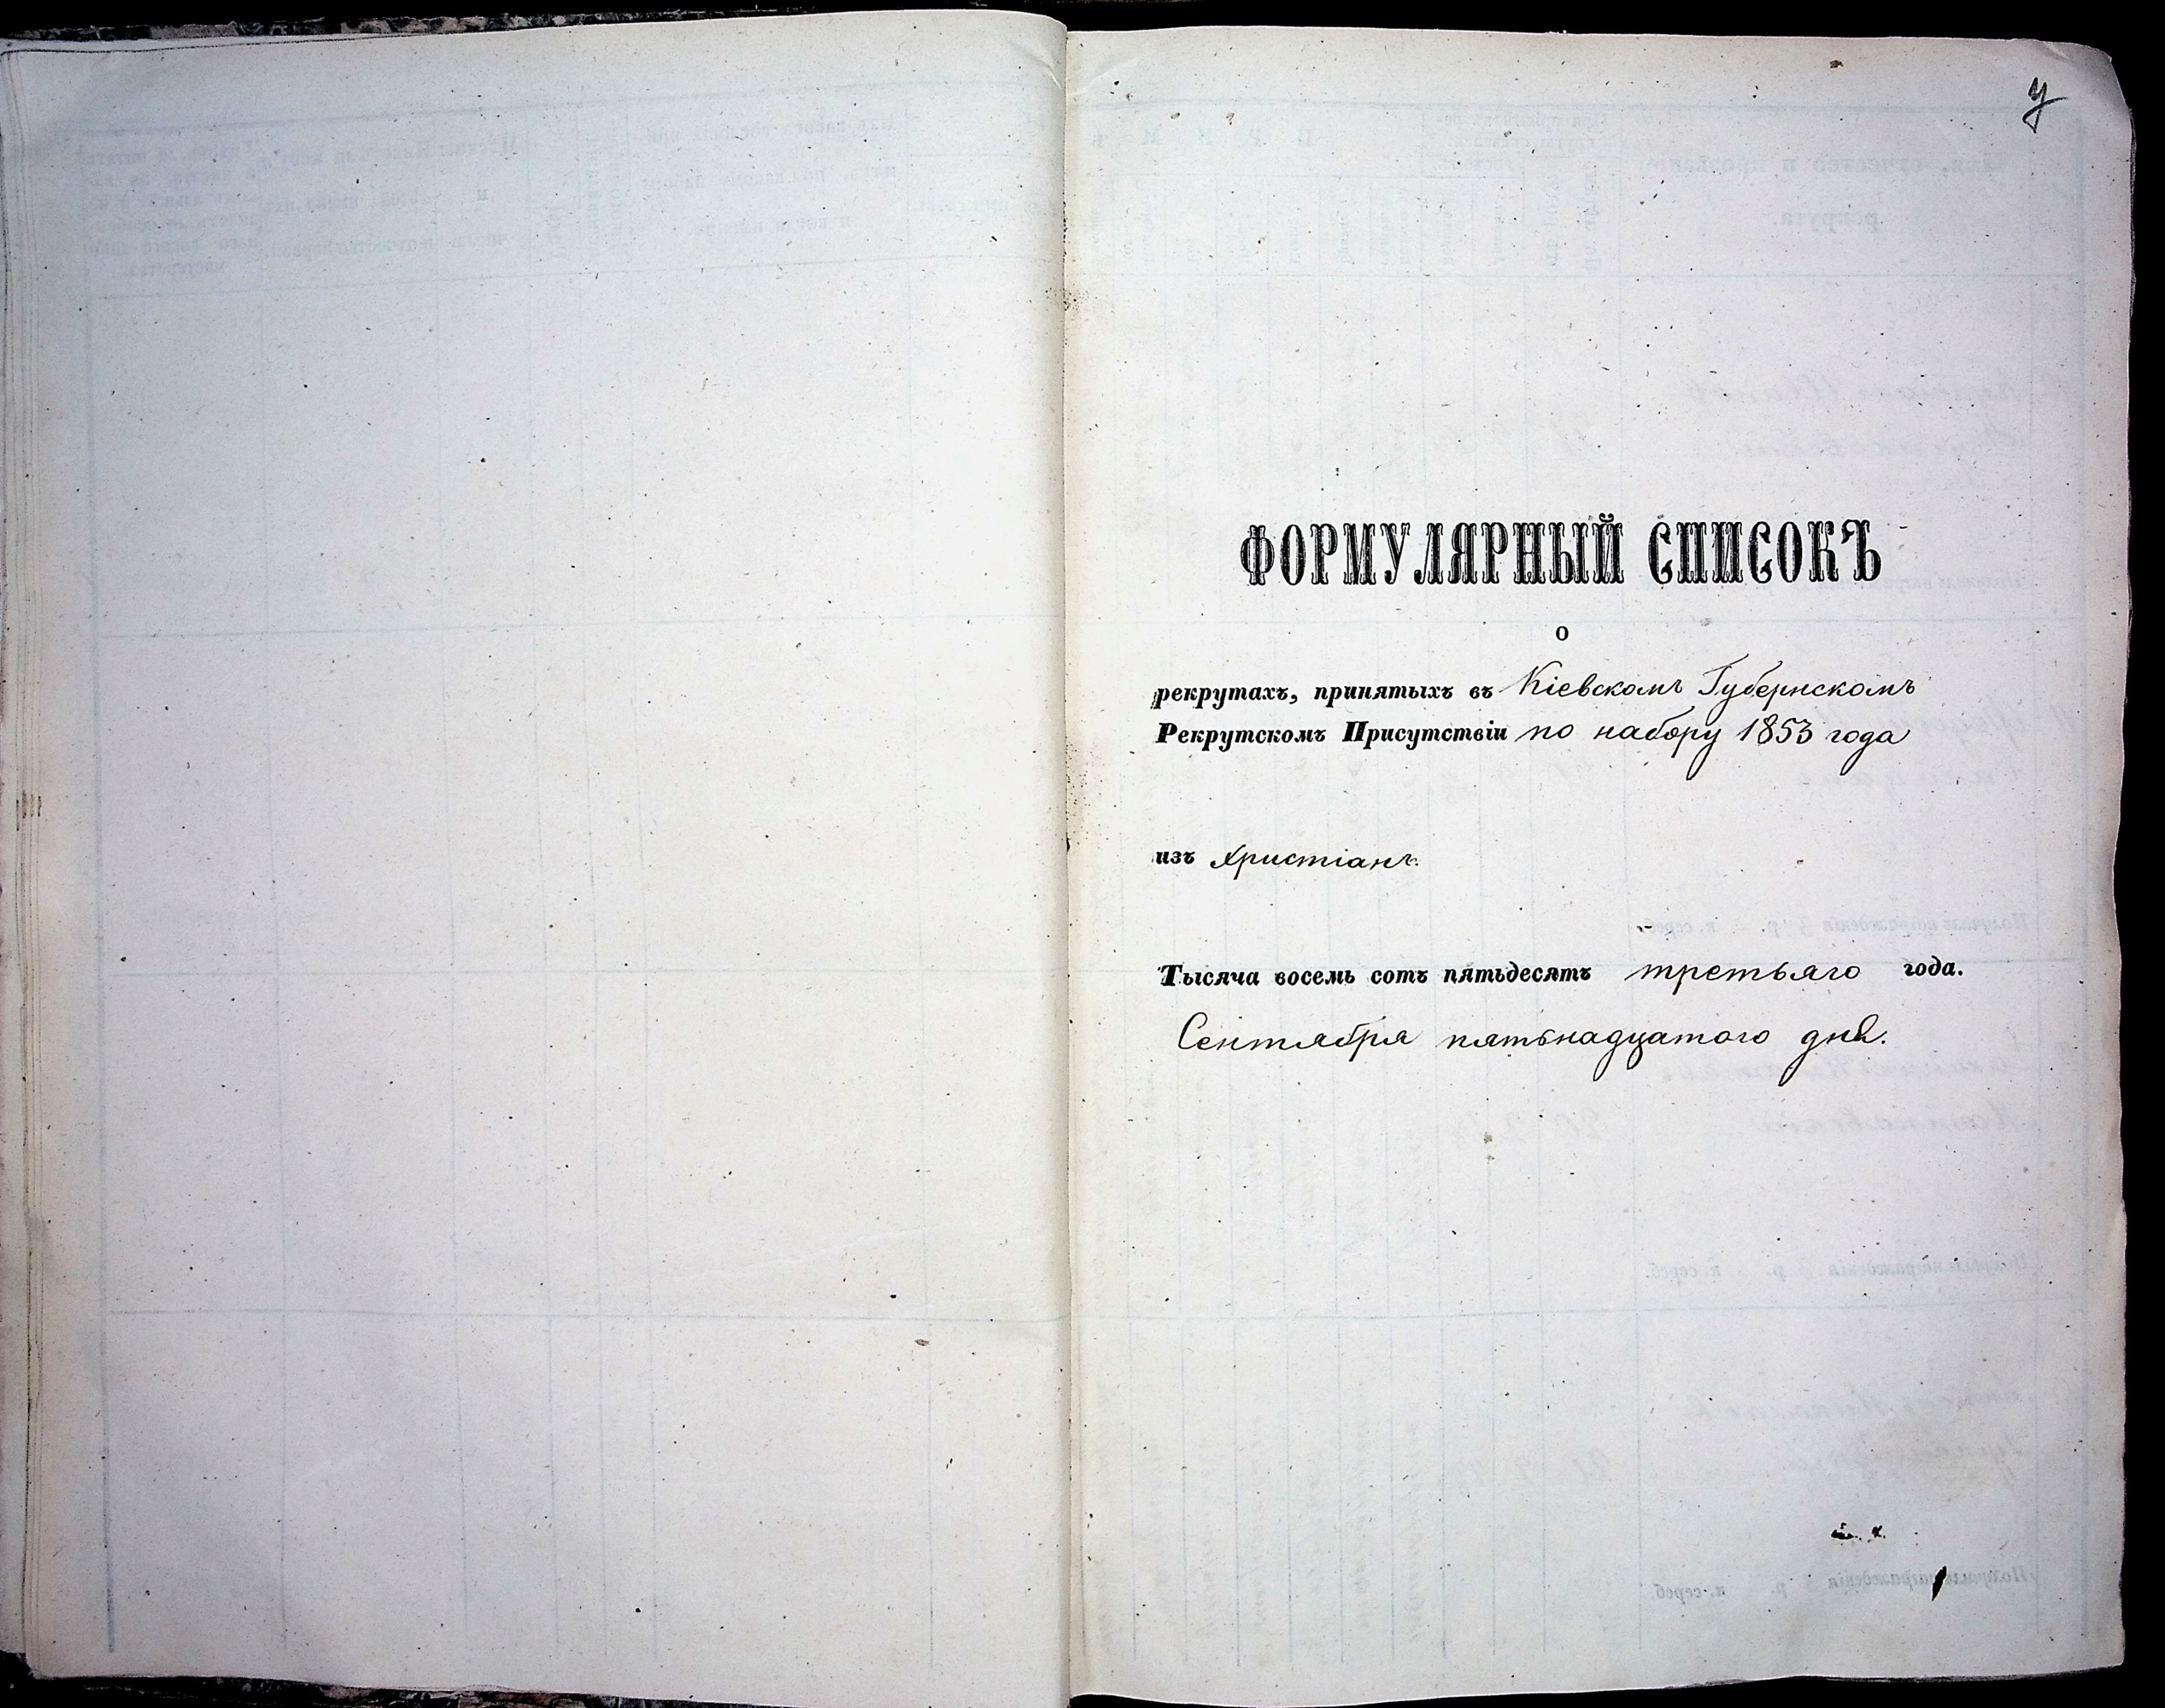 ФОРМУЛЯРНЫЙ СПИСОКЪ
о
рекрутахъ, принятыхъ въ Кіевскомъ Губернскомъ
Рекрутскомъ Присутствіи по набору 1853 года
изъ Христіанъ.
Тысяча восемь сотъ пятьдесятъ третьяго года.
Сентября пятьнадцатого дня.